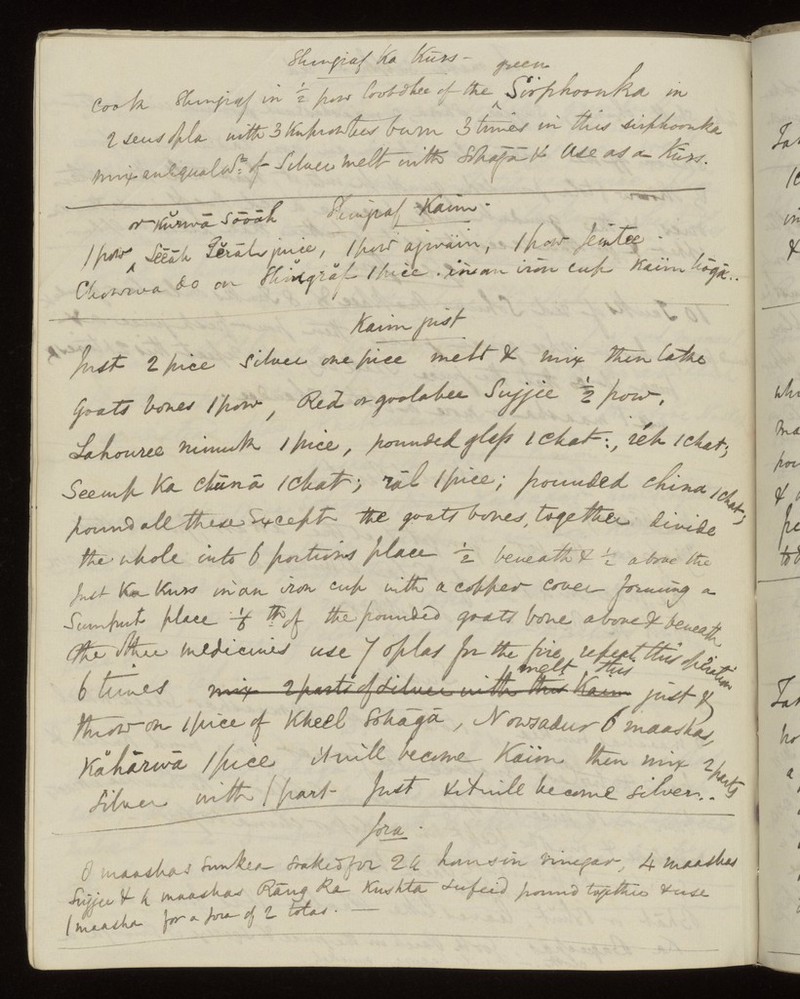 Shingraf Ka Kurs -
green
Cook Shingraf in ½ pow loobdhee of the Sirphoonka in
2 seers opla with 3 Kuprowtees burn 3 times in this sirphoonka
mix an equal wt. of Silver melt with Sohaga & Use as a Kurs.
or Kŭrwā Sōōāh Shingraf Kaim.
1 pow Seeah juice, 1 pow ajwäin, 1 pow
Chowwa do on Shingräf 1 pice. in an iron cup Kaim hoga..
Kaim just
Just 2 pice Silver one pice melt & mix then take
Goats bones 1 pow, Red or goolabee Sujjie ½ pow,
Lahouree nimuk 1 pice, pounded glass 1 chat:, réh 1 chat;
Seemp Ka chūnā 1 chat; räl 1 pice; pounded china 1 chat;
pound all these except the goats bones, together divide
the whole into 6 portions place ½ beneath & ½ above the
Just Ka Kurs in an iron cup with a copper cover forming a
Sumput place ⅙ th of the pounded goats bone above & beneath
the other medicines use 7 oplas for the fire, repeat this operation
6 times mix 2 parts of silver with this Kaim melt this just &
throw on 1 pice of Kheel Sohāgā, Nowsadur 6 maashas,
Kăhărwā 1 pice it will become Kaim then mix 2 parts
Silver with 1 part Just & it will become silver..
Jora.
maashas Sunkea soaked for 24 hours in vinegar, 4 maashas
Sujjie & 4 maashas Räng Ka Kushta sufeid pound together & use
1 maasha for a jora of 2 tolas. —